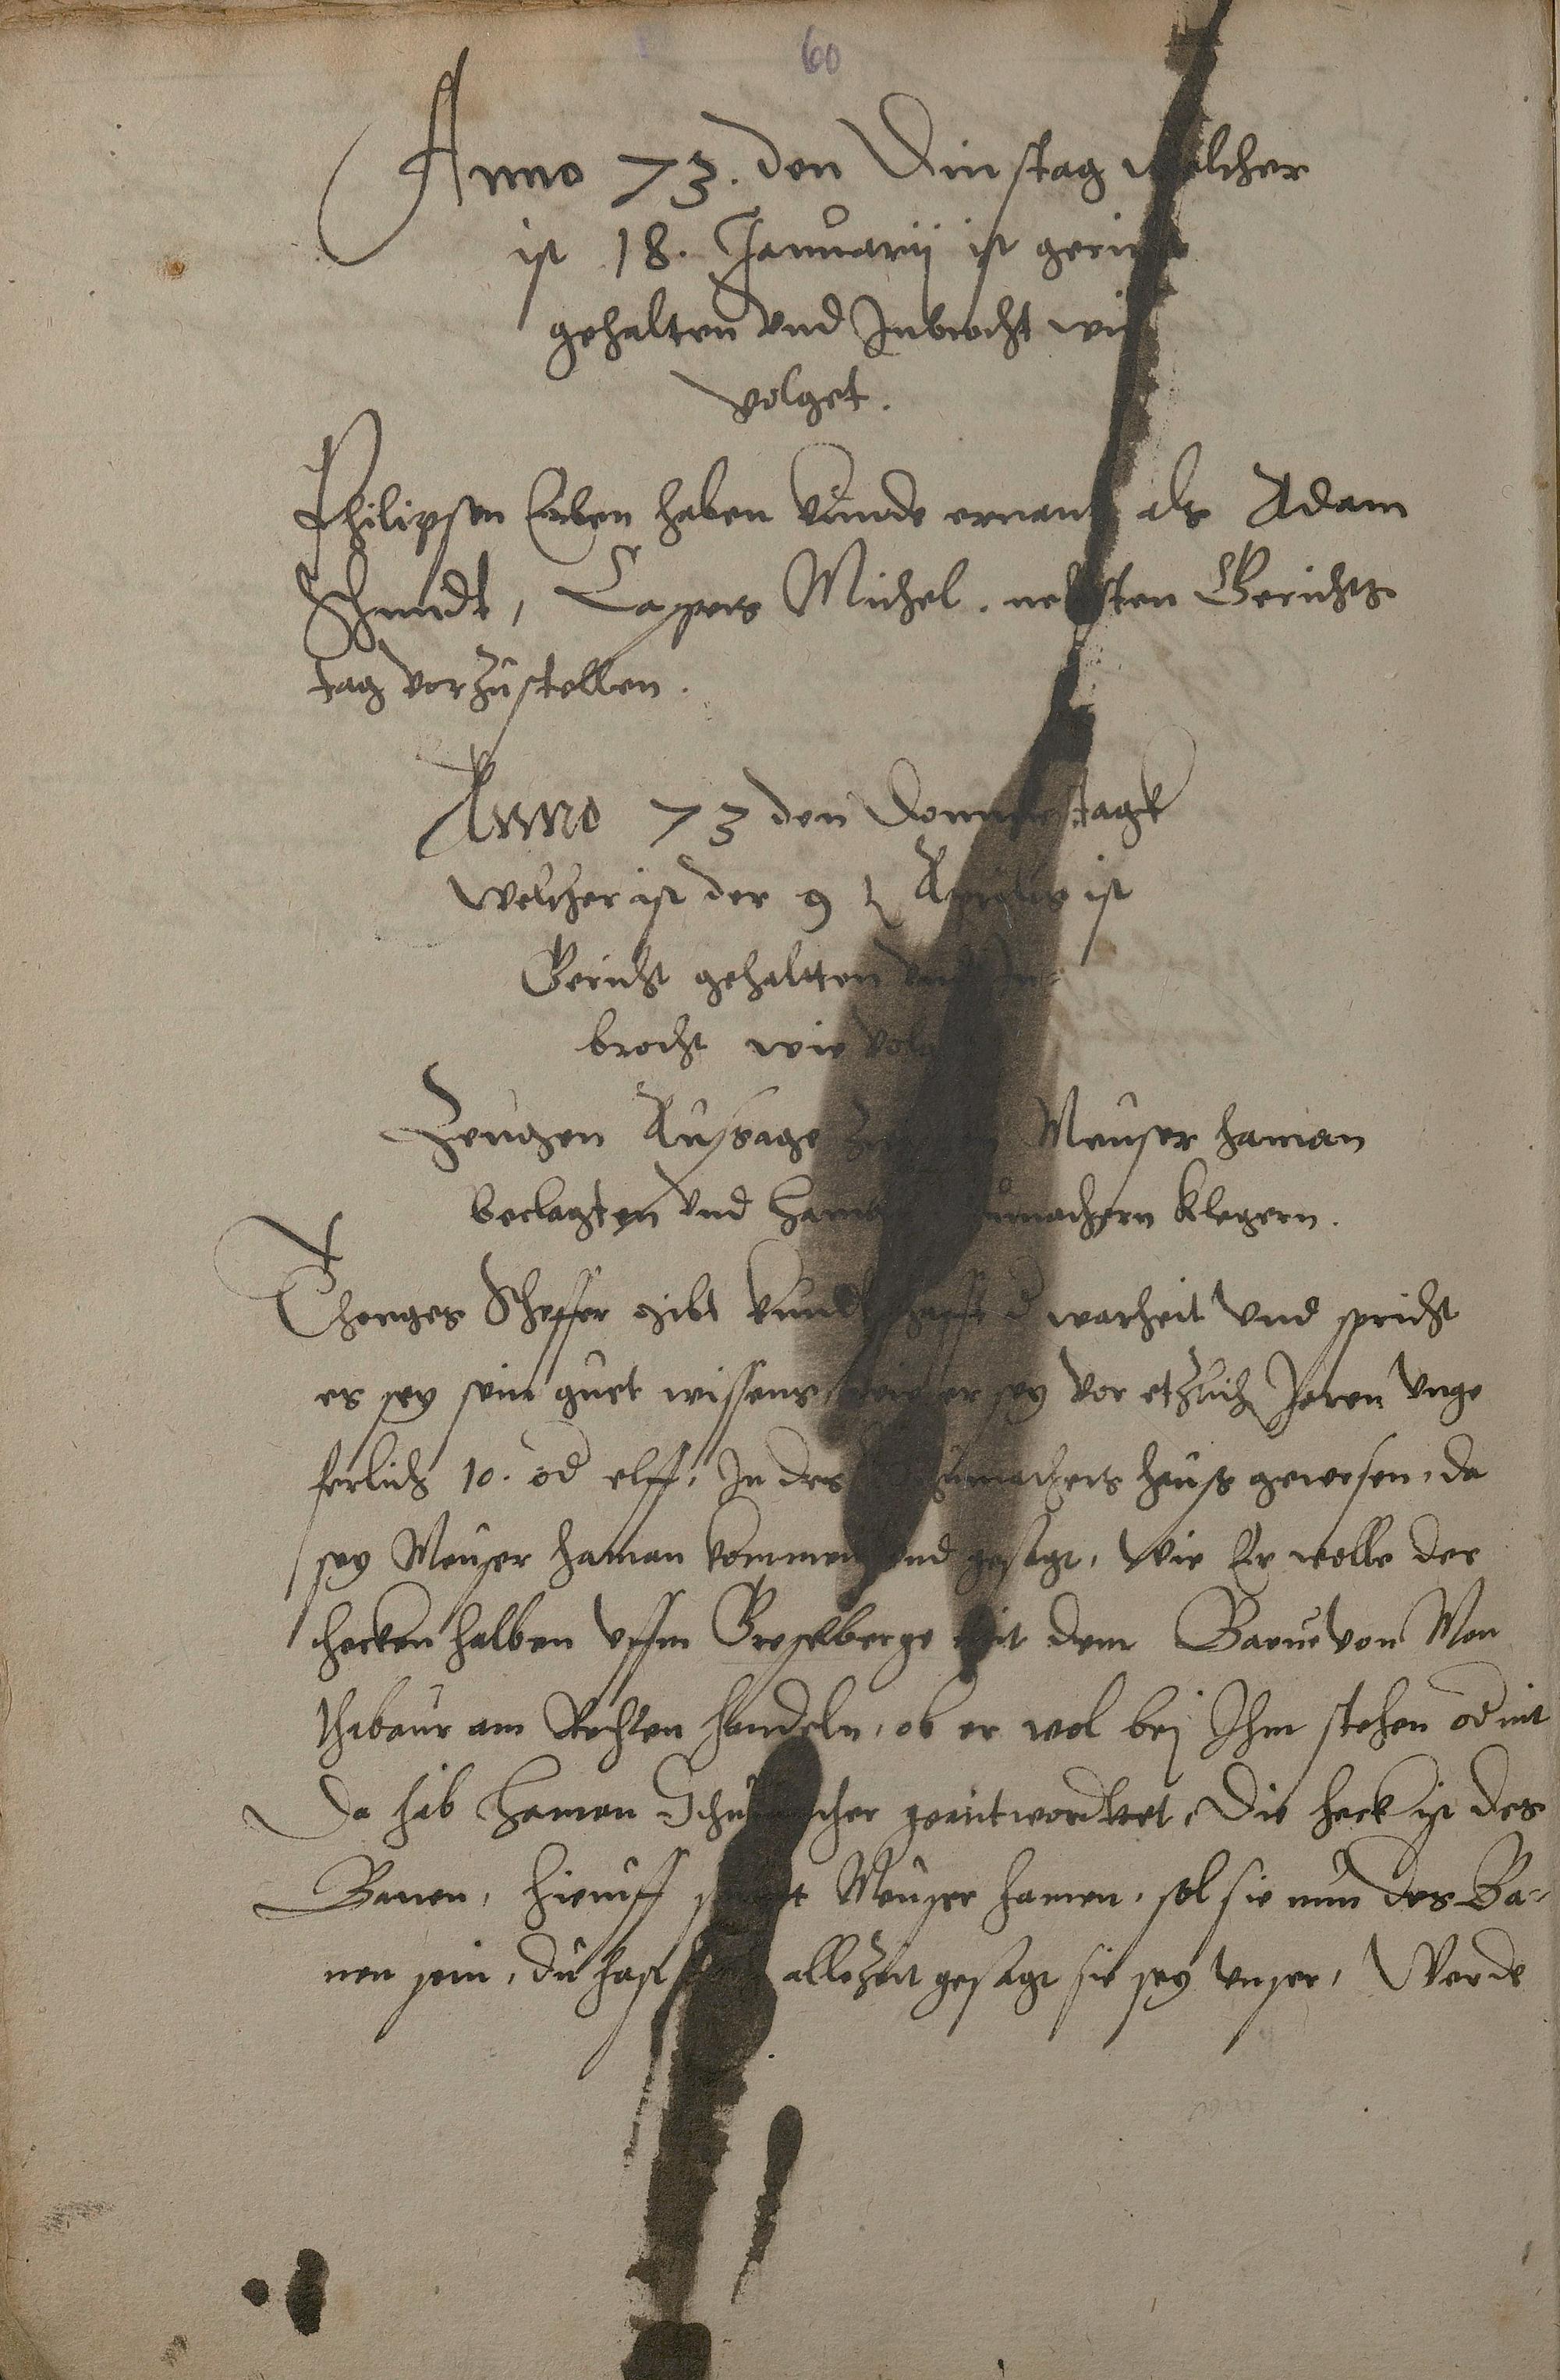 60
Anno 73. den Dinstag welcher
ist 18. Januarii ist gericht
gehalten vnd Inbrocht wie
volget.
Philipsen Erben haben kunde ernant als Adam
Schmidt, Caspers Michel. nehsten Gerichts
tag vorzustellen.
Anno 73 den Donnerstagk
welcher ist der 9 t Aprilis ist
Gericht gehaltten vnd In-
brocht wie volget
Zeugen Aussage Meuser haman
beclagten vnd haman Schumachern klegern.
Thonges Scheffer gibt kundtschafft d warheit vnd spricht
es sey sein guet wissens, wie er sey vor etzlich Jaren vnge
ferlich 10. od elff, In des Schumachers hauß gewesen, da
sey Meuser haman kommen vnd gesagt, Wie Er wolle der
hecken halben vffm Greselberge mit dem Baeue von Mon
thabaur am Rechten handeln, ob er wol bej Ihm stehen od nit
Da hab Haman Schumacher geantwordtet, Die heck ist des
Bauen, hieruff spricht Meuser haman, sol sie nun des Ba-
uen sein, du hast allezeit gesagt sie sey vnser, Werde